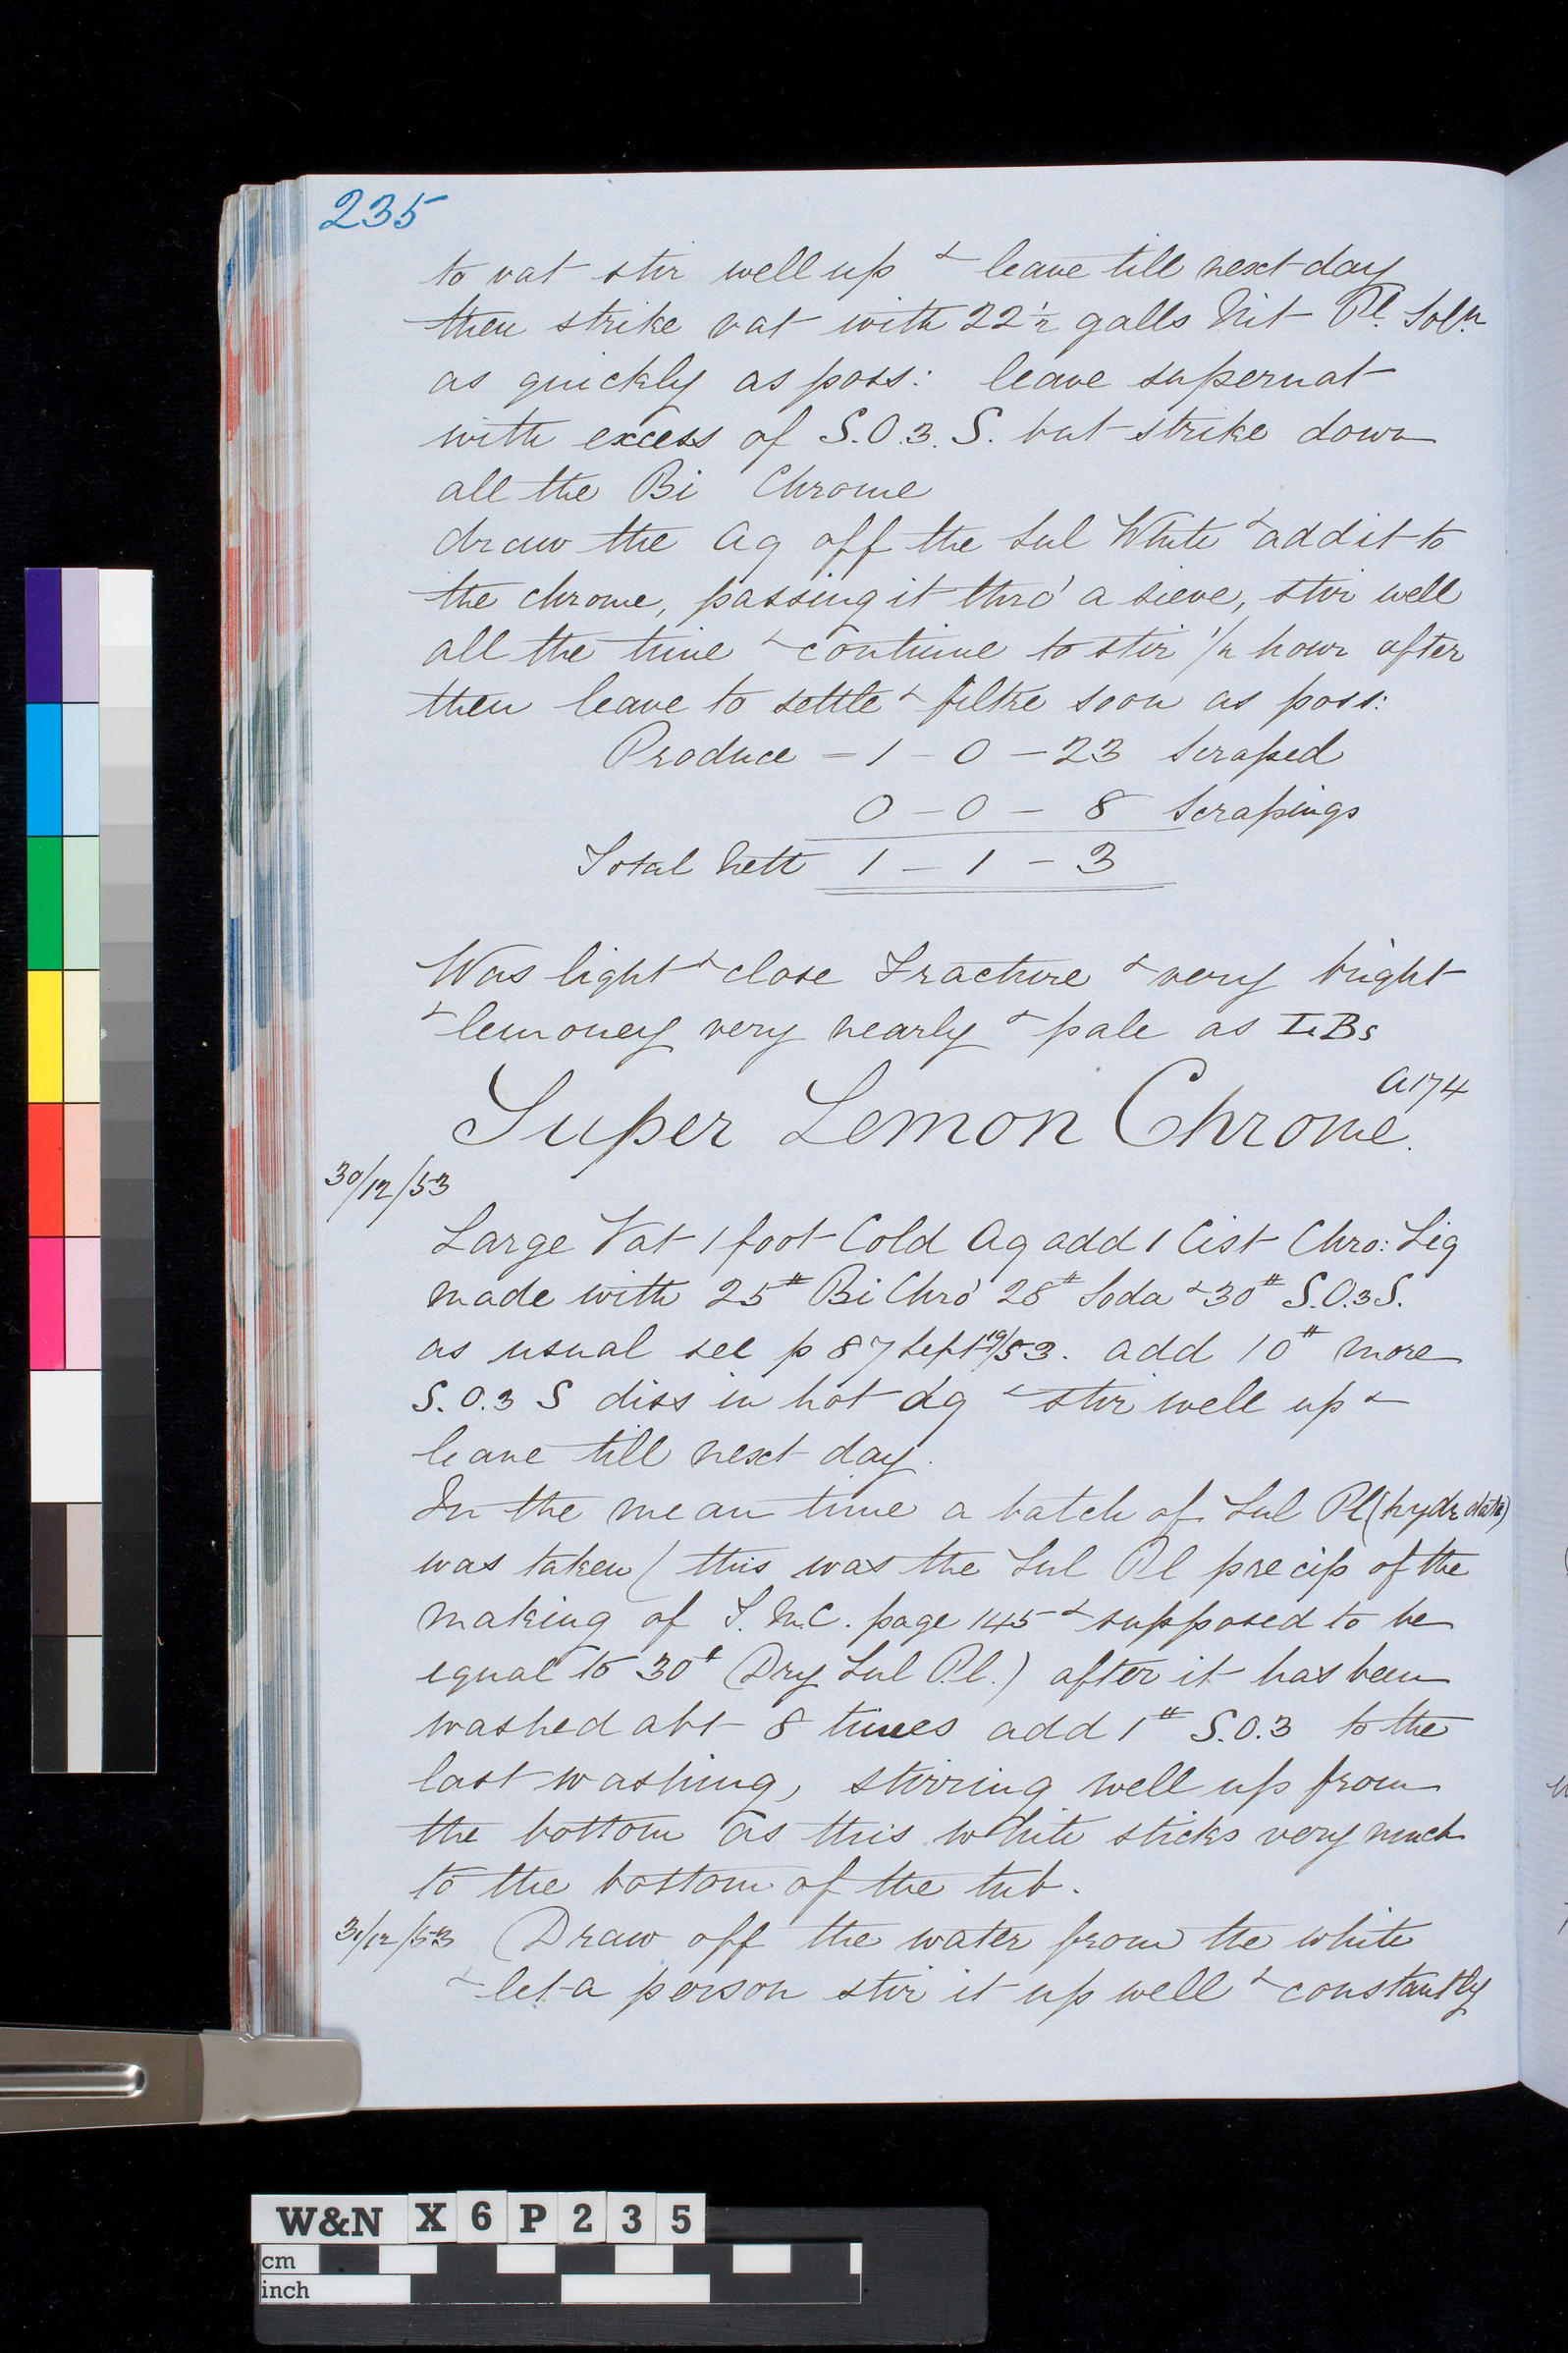 235
to vat stir well up & leave till next day
then strike vat with 22½ galls Nit Pl. Soln
as quickly as poss: leave supernat
with excess of S.O.3.S. but strike down
all the Bi Chrome
draw the Aq off the Sul White & add it to
the chrome, passing it thro' a sieve, stir well
all the time & continue to stir 1/2 hour after
then leave to settle & filtre soon as poss:
Produce = 1 - 0 - 23 Scraped
0 - 0 - 8 Scrapings
Total Nett 1 - 1 - 3
Was light & close Fracture & very bright
& lemoney very nearly & pale as
A174
Super Lemon Chrome.
30/12/53
Large Vat 1 foot Cold Aq add 1 Cist Chro: Liq
made with 25# Bi Chro' 28# Soda & 30# S.O.3S.
as usual see p 87 Sept 19/53. add 10# more
S.O.3 S diss in hot Aq & stir well up &
leave till next day.
In the mean time a batch of Sul Pl (hydrdate)
was taken (this was the Sul Pl precip of the
making of page 145 & supposed to be
equal to 30# (Dry Sul Pl.) after it has been
washed abt 8 times add 1# S.O.3 to the
last washing, stirring well up from
the bottom as this white sticks very much
to the bottom of the tub.
31/12/53 Draw off the water from the white
& let a person stir it up well & constantly
W&N X 6 P 2 3 5
cm
inch